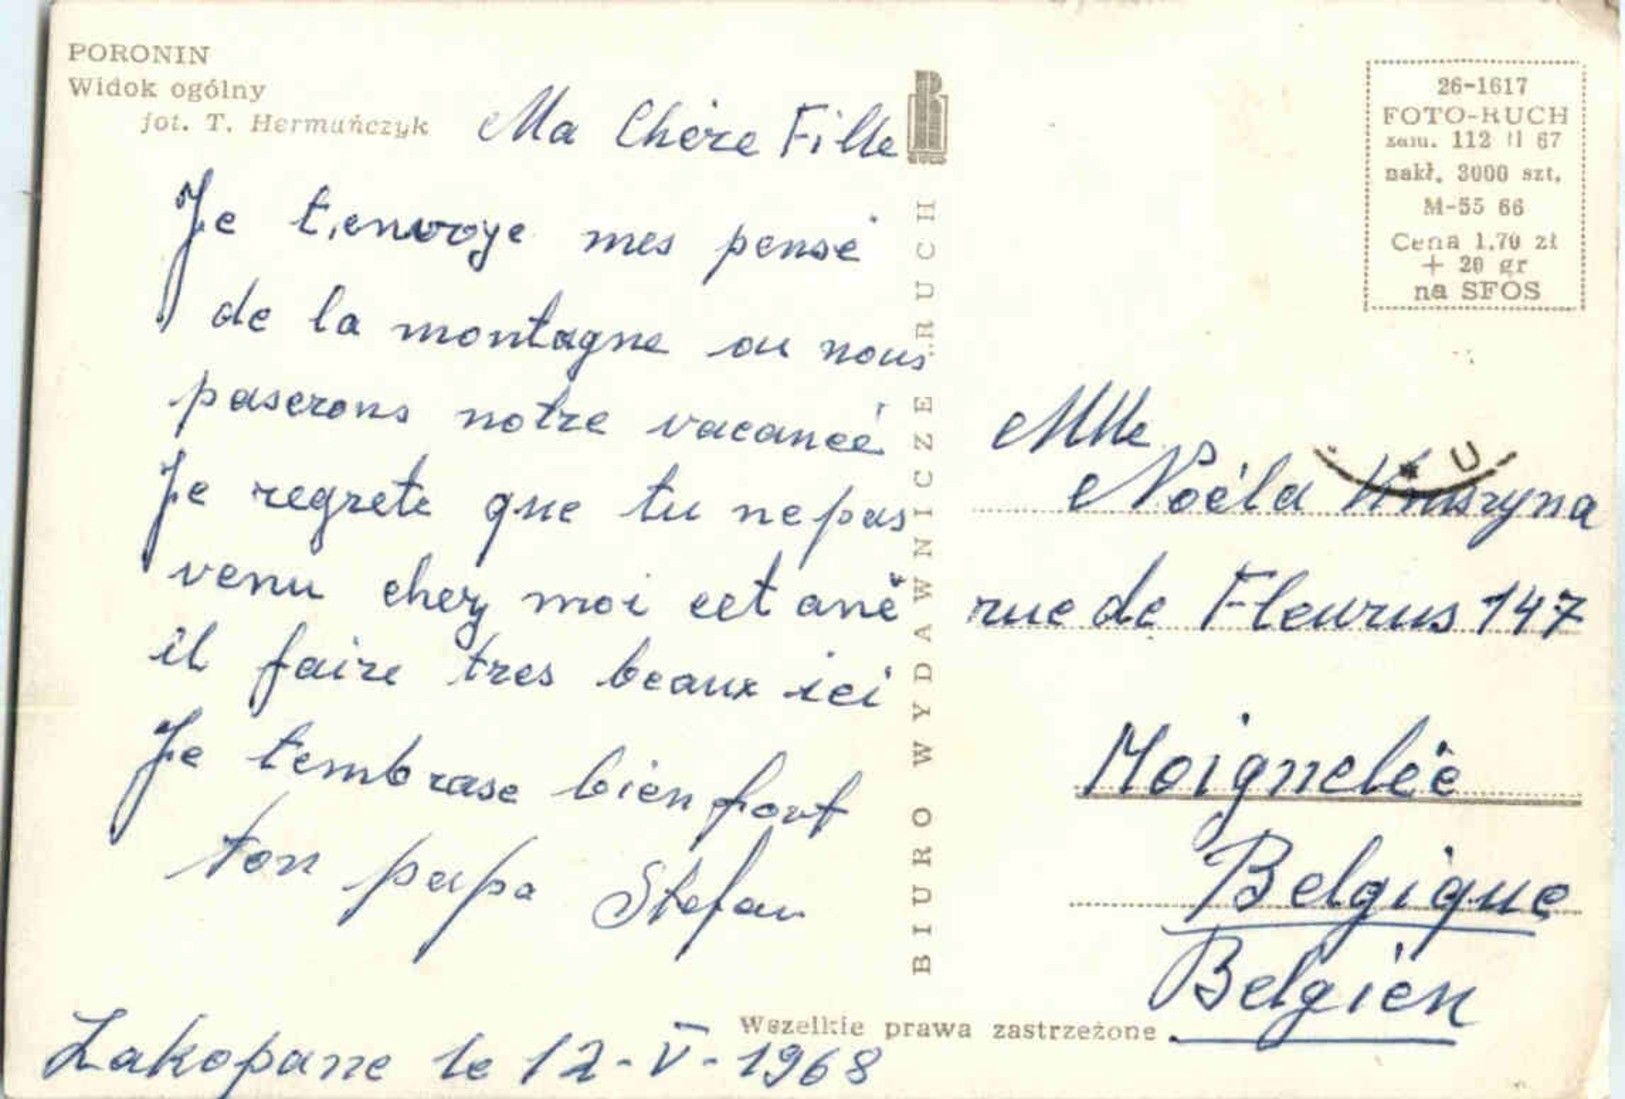 PORONIN
Widok ogólny
fot. T. Hermańczyk
Ma Chère Fille
Je t,envoye mes pensé
de la montagne ou nous
paserons notre vacanèé
Je regrete que tu ne pas
venu chez moi cet ané
il faire tres beaux ici
Je tembrase bien fort
ton papa Stefan
Zakopane le 12-V-1968
BIURO WYDAWNICZE „RUCH
RUCH
26-1617
FOTO-RUCH
zam. 112 II 67
nakł. 3000 szt.
M-55 66
Cena 1.70 zł
+ 20 gr
na SFOS
Mlle
Noéla
rue de Fleurus 147
Moignelée
Belgique
Belgien
Wszelkie prawa zastrzeżone